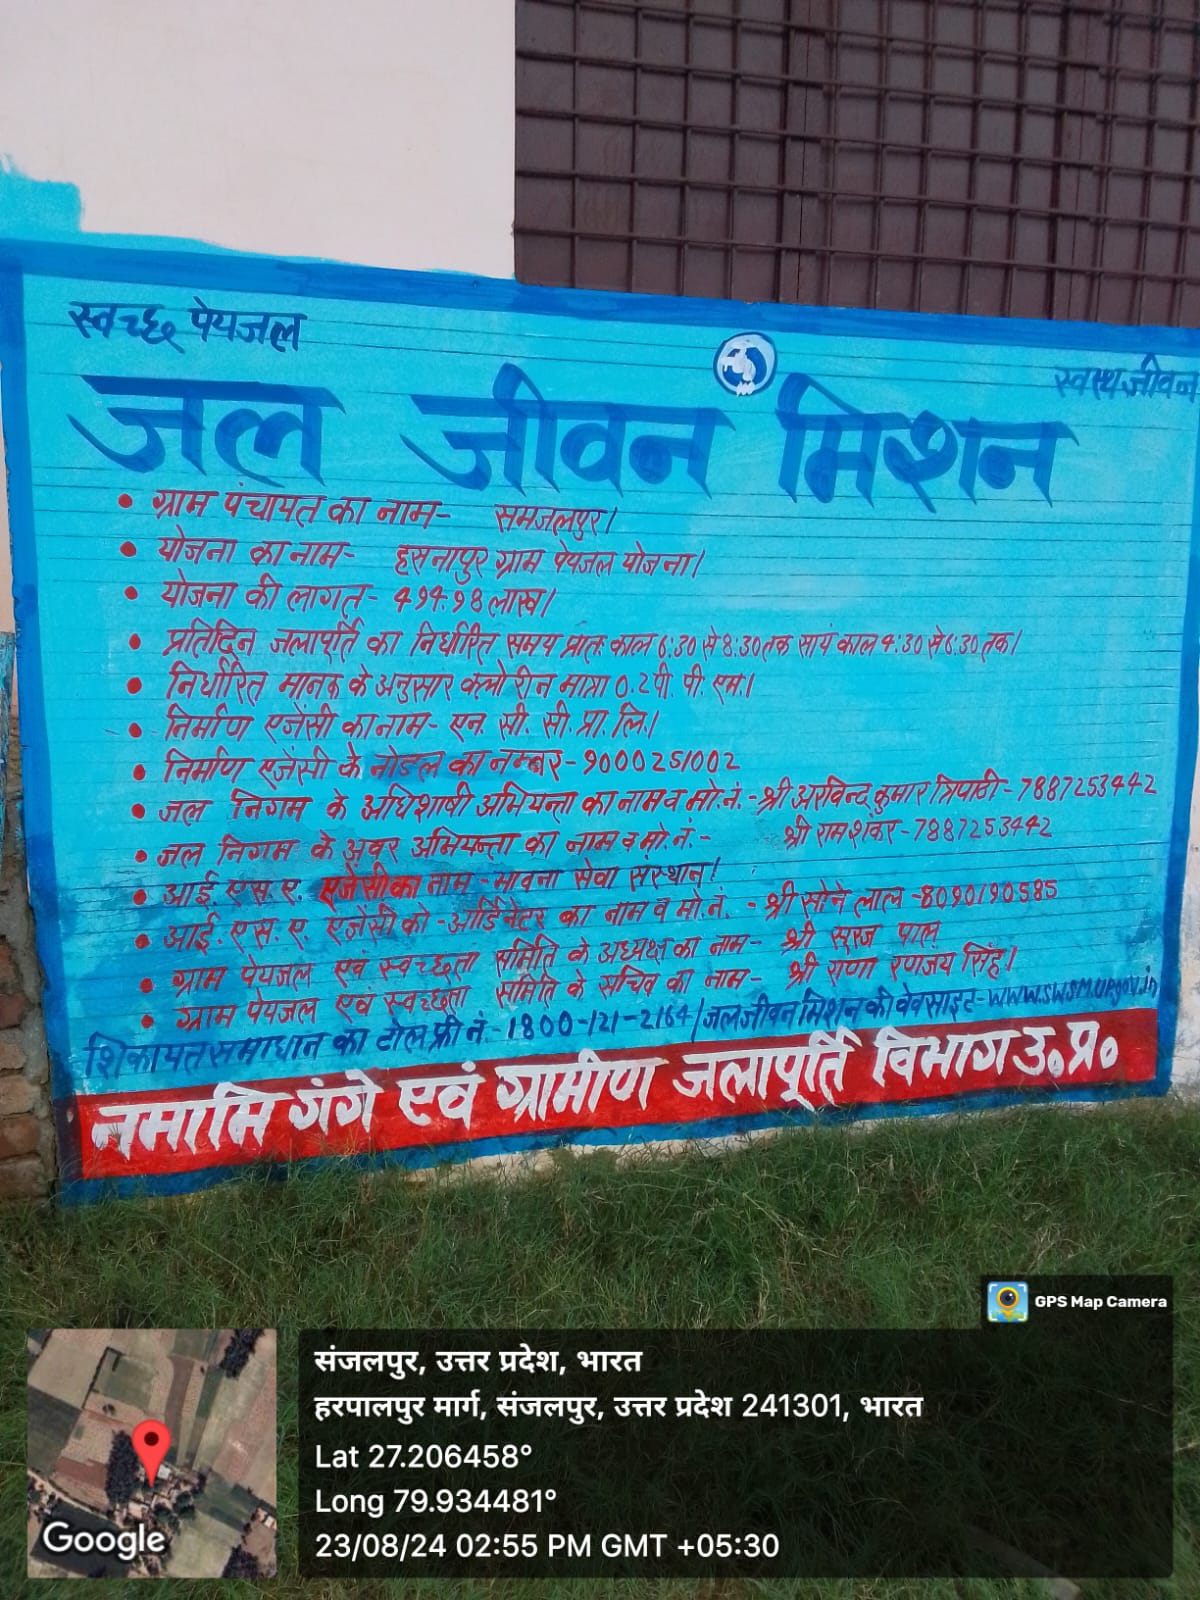 स्वच्छ पेयजल
स्वस्थ जीवन
जल जीवन मिशन
• ग्राम पंचायत का नाम- समजलपुर।
• योजना का नाम- हसनापुर ग्राम पेयजल योजना।
• योजना की लागत- 494.98 लाख।
• प्रतिदिन जलापूर्ति का निर्धारित समय प्रातः काल 6:30 से 8:30 तक सायं काल 4:30 से 6:30 तक।
• निर्धारित मानक के अनुसार क्लोरीन मात्रा 0.2 पी. पी. एम.।
• निर्माण एजेंसी का नाम- एन. सी. सी. प्रा. लि.।
• निर्माण एजेंसी के नोडल का नम्बर- 9000251002
• जल निगम के अधिशाषी अभियन्ता का नाम व मो. नं. - श्री अरविन्द कुमार त्रिपाठी - 7887253442
• जल निगम के अवर अभियन्ता का नाम व मो. नं. - श्री राम शंकर - 7887253442
• आई. एस. ए. एजेंसी का नाम - भावना सेवा संस्थान।
• आई. एस. ए. एजेंसी को-आर्डिनेटर का नाम व मो. नं. - श्री सोने लाल - 8090190585
• ग्राम पेयजल एवं स्वच्छता समिति के अध्यक्ष का नाम- श्री सूरज पाल
• ग्राम पेयजल एवं स्वच्छता समिति के सचिव का नाम- श्री राणा रणंजय सिंह।
शिकायत समाधान का टोल फ्री नं. - 1800-121-2164 / जल जीवन मिशन की वेबसाइट- www.swsm.up.gov.in
नमामि गंगे एवं ग्रामीण जलापूर्ति विभाग उ॰ प्र॰
GPS Map Camera
संजलपुर, उत्तर प्रदेश, भारत
हरपालपुर मार्ग, संजलपुर, उत्तर प्रदेश 241301, भारत
Lat 27.206458°
Long 79.934481°
23/08/24 02:55 PM GMT +05:30
Google